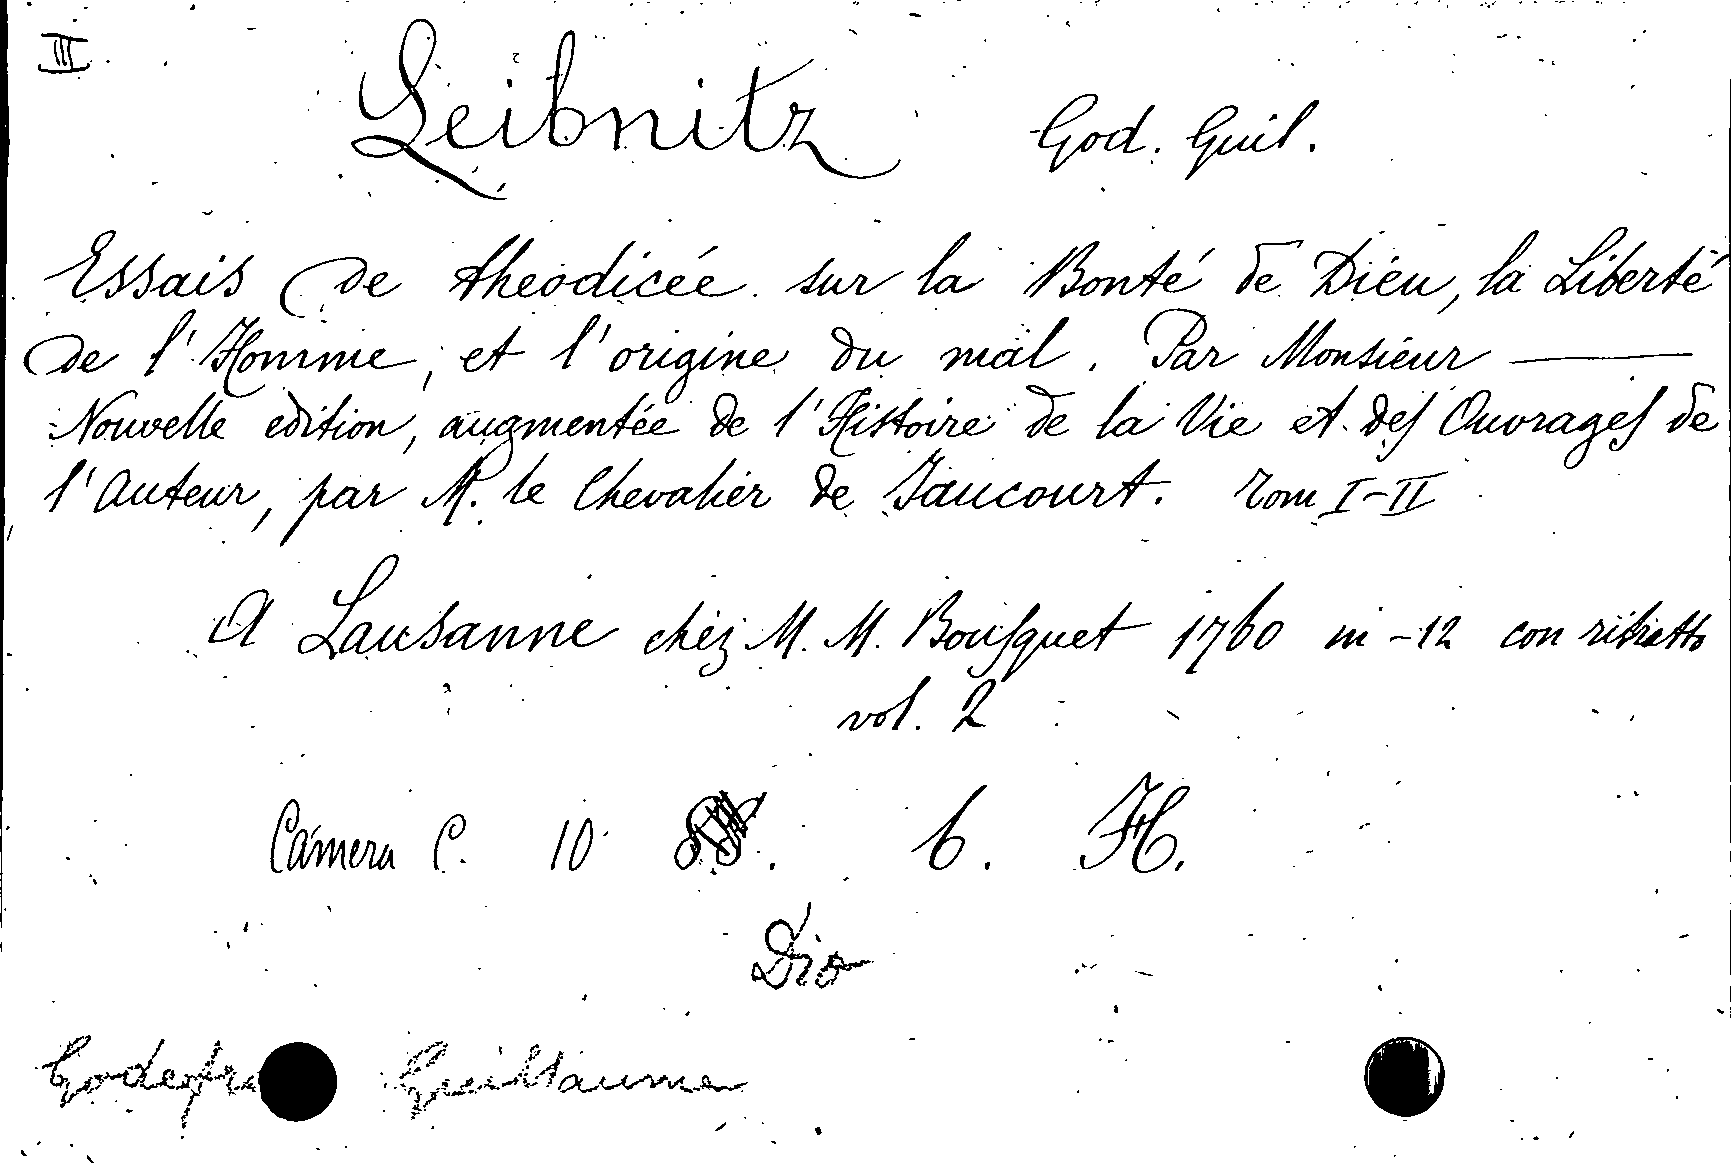 III
Leibnitz God. Guil.
Essais de theodicée sur la Bonté de Dieu, la Liberté
de l'Homme, et l'origine du mal. Par Monsieur ———
Nouvelle edition, augmentée de l'Histoire de la Vie et des Ouvrages de
l'Auteur, par M. le Chevalier de Jaucourt. Tom I-II
A Lausanne chéz M. M. Bousquet 1760 in-12 con ritratto
vol. 2
Camera C. 10 6. H.
Dio
Guillaume